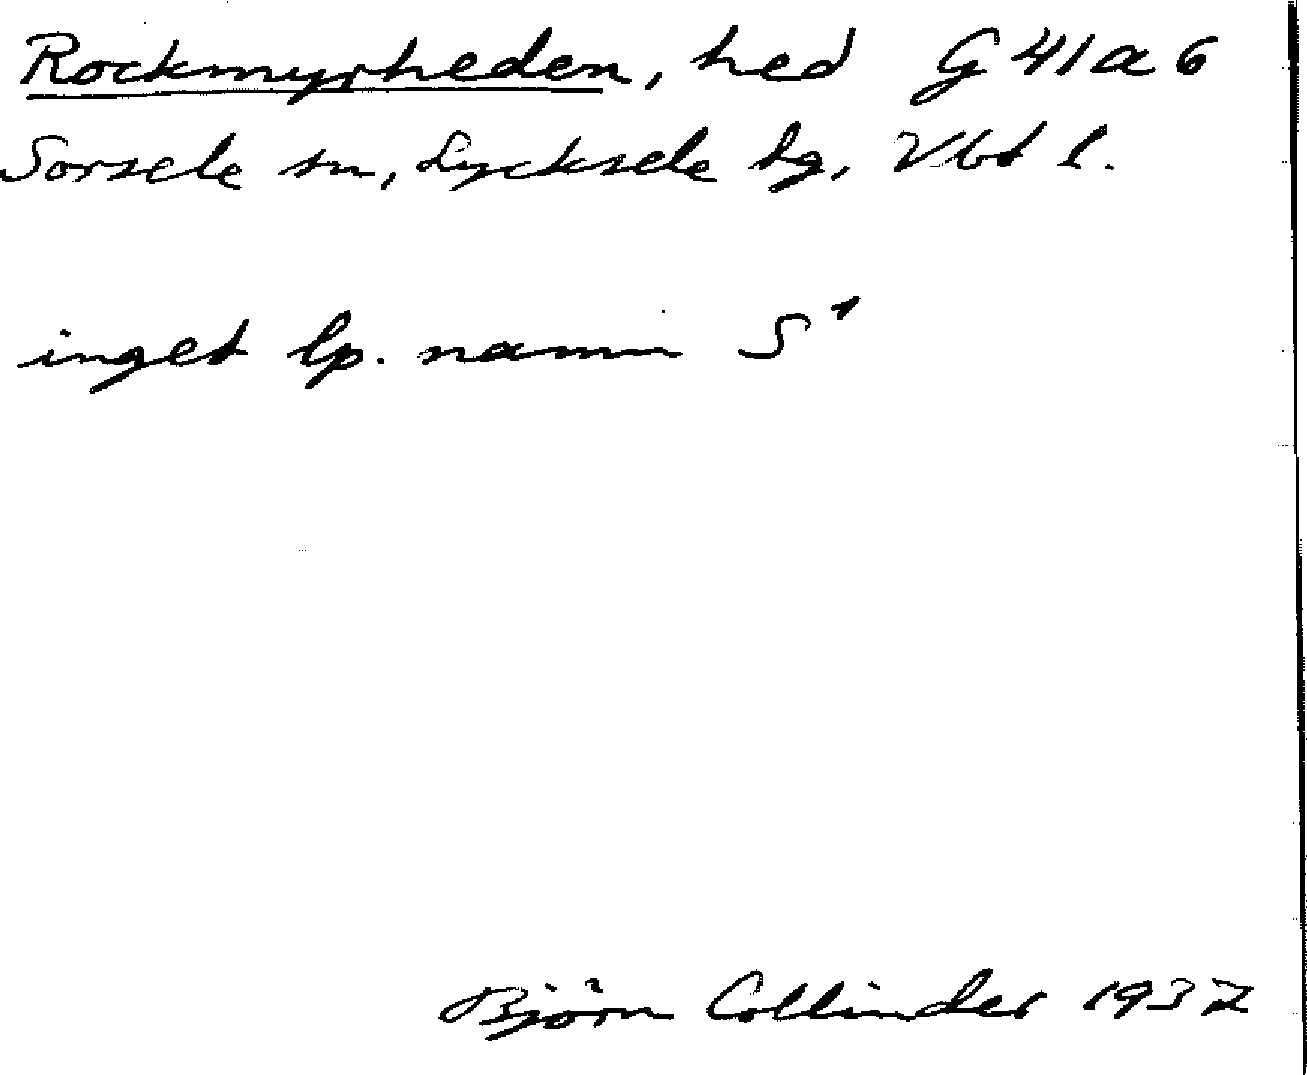 Rockmyrheden, hed G 41 a 6
Sorsele sn, Lycksele lg, Vbt l.
inget lp. namn S¹
Björn Collinder 1937